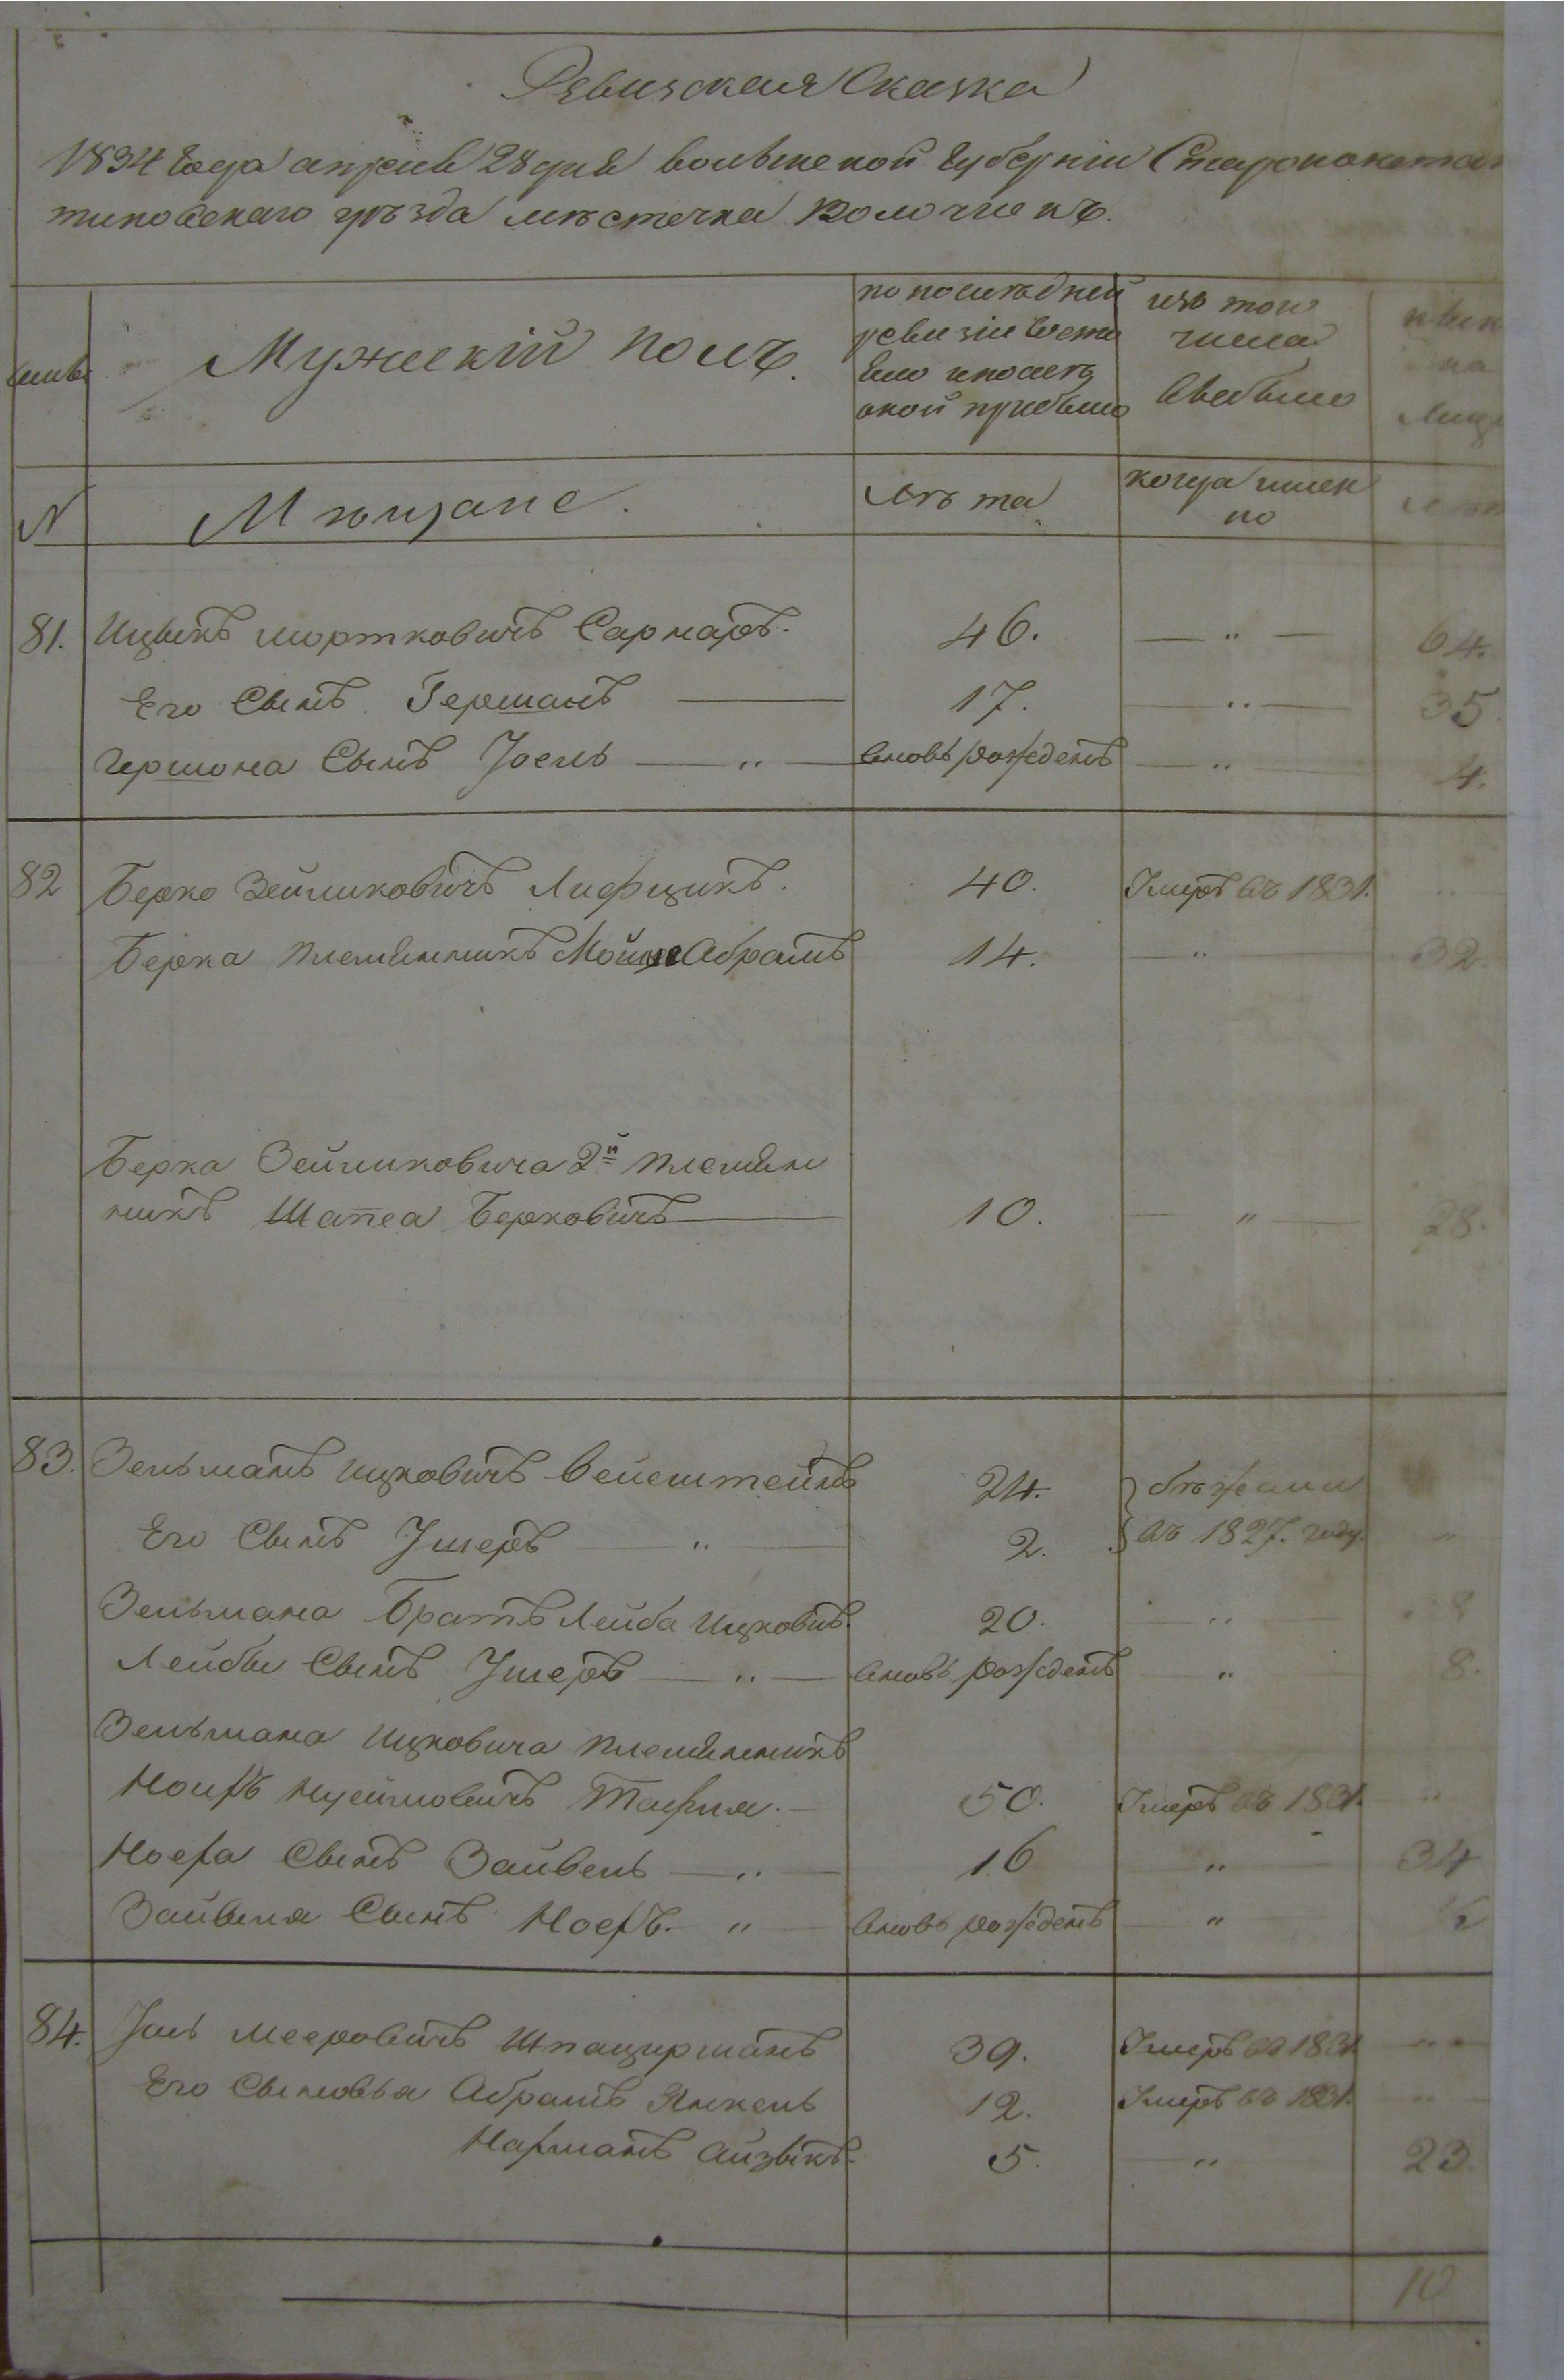 Ревизская Сказка
1834 года апреля 28 дня волынской губерніи Староконстан
тиновскаго уѣзда мѣстечка Волочискъ.
Мужескій полъ.
по послѣдней
ревизіи состо
яло и послѣ
оной прибыло
изъ того
числа
выбыло
ныне
на
лиц
N
Мѣщане.
лѣта
когда имен
но
лѣт
81. Ицыкъ шортковичъ Сарнаръ. 46. — „ — 64.
Его Сынъ Гершанъ — 17. — „ — 35.
Гершона Сынъ Іосль — „ — вновь рожденъ — „ — 4.
82 Берко Зейликовичъ Лифщикъ. 40. Умеръ въ 1831. „
Берка племянникъ Мойше Абрамъ 14. — „ — 32.
Берка Зейликовича 2й племян
никъ Шапса Берковичъ — 10. — „ — 28.
83. Зельманъ Ицковичъ Вейсштейнъ 24. бѣжали
Его Сынъ Ушеръ — „ — 2. въ 1827. году. „
Зельмана Братъ Лейба Ицковичъ. 20. — „ — 38
Лейбы Сынъ Ушеръ — „ — вновь рожденъ — „ — 8.
Зельмана Ицковича племянникъ
Ноифъ Тафля. — 50. Умеръ въ 1831. „
Ноефа Сынъ Зайвель — „ — 16 — „ — 34
Зайвеля Сынъ Ноефъ. „ — вновь рожденъ — „ — ½
84. Іоль Мееровичъ Шпацирманъ 39. Умеръ въ 1831 „
Его Сыновья Абрамъ Янкель 12. Умеръ въ 1831. „
Нафманъ Айзыкъ. 5. — „ — 23.
10